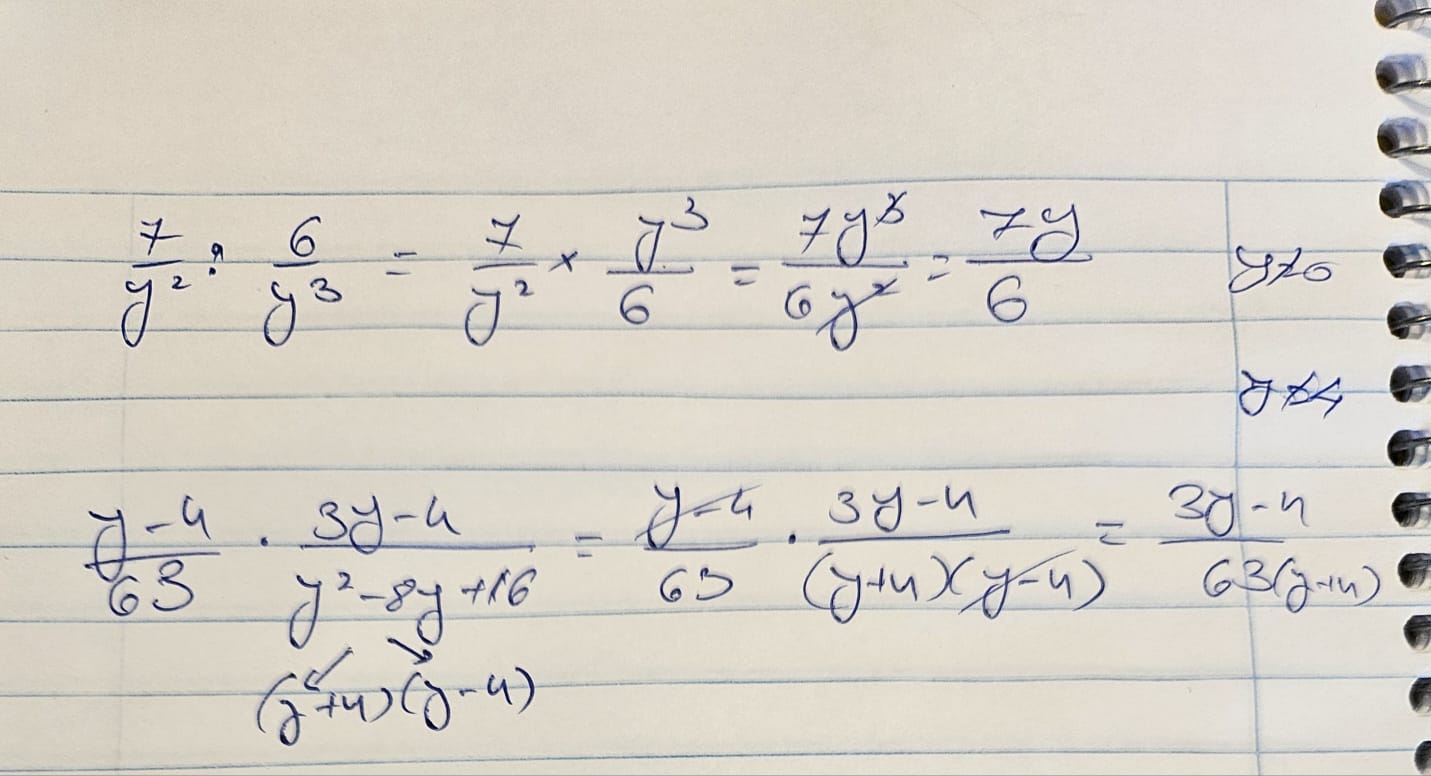 7/y² : 6/y³ = 7/y² × y³/6 = 7y³/6y² = 7y/6 y≠0
y≠4
y-4/63 · 3y-4/y²-8y+16 = y-4/63 · 3y-4/(y+4)(y-4) = 3y-4/63(y+4)
(y+4)(y-4)